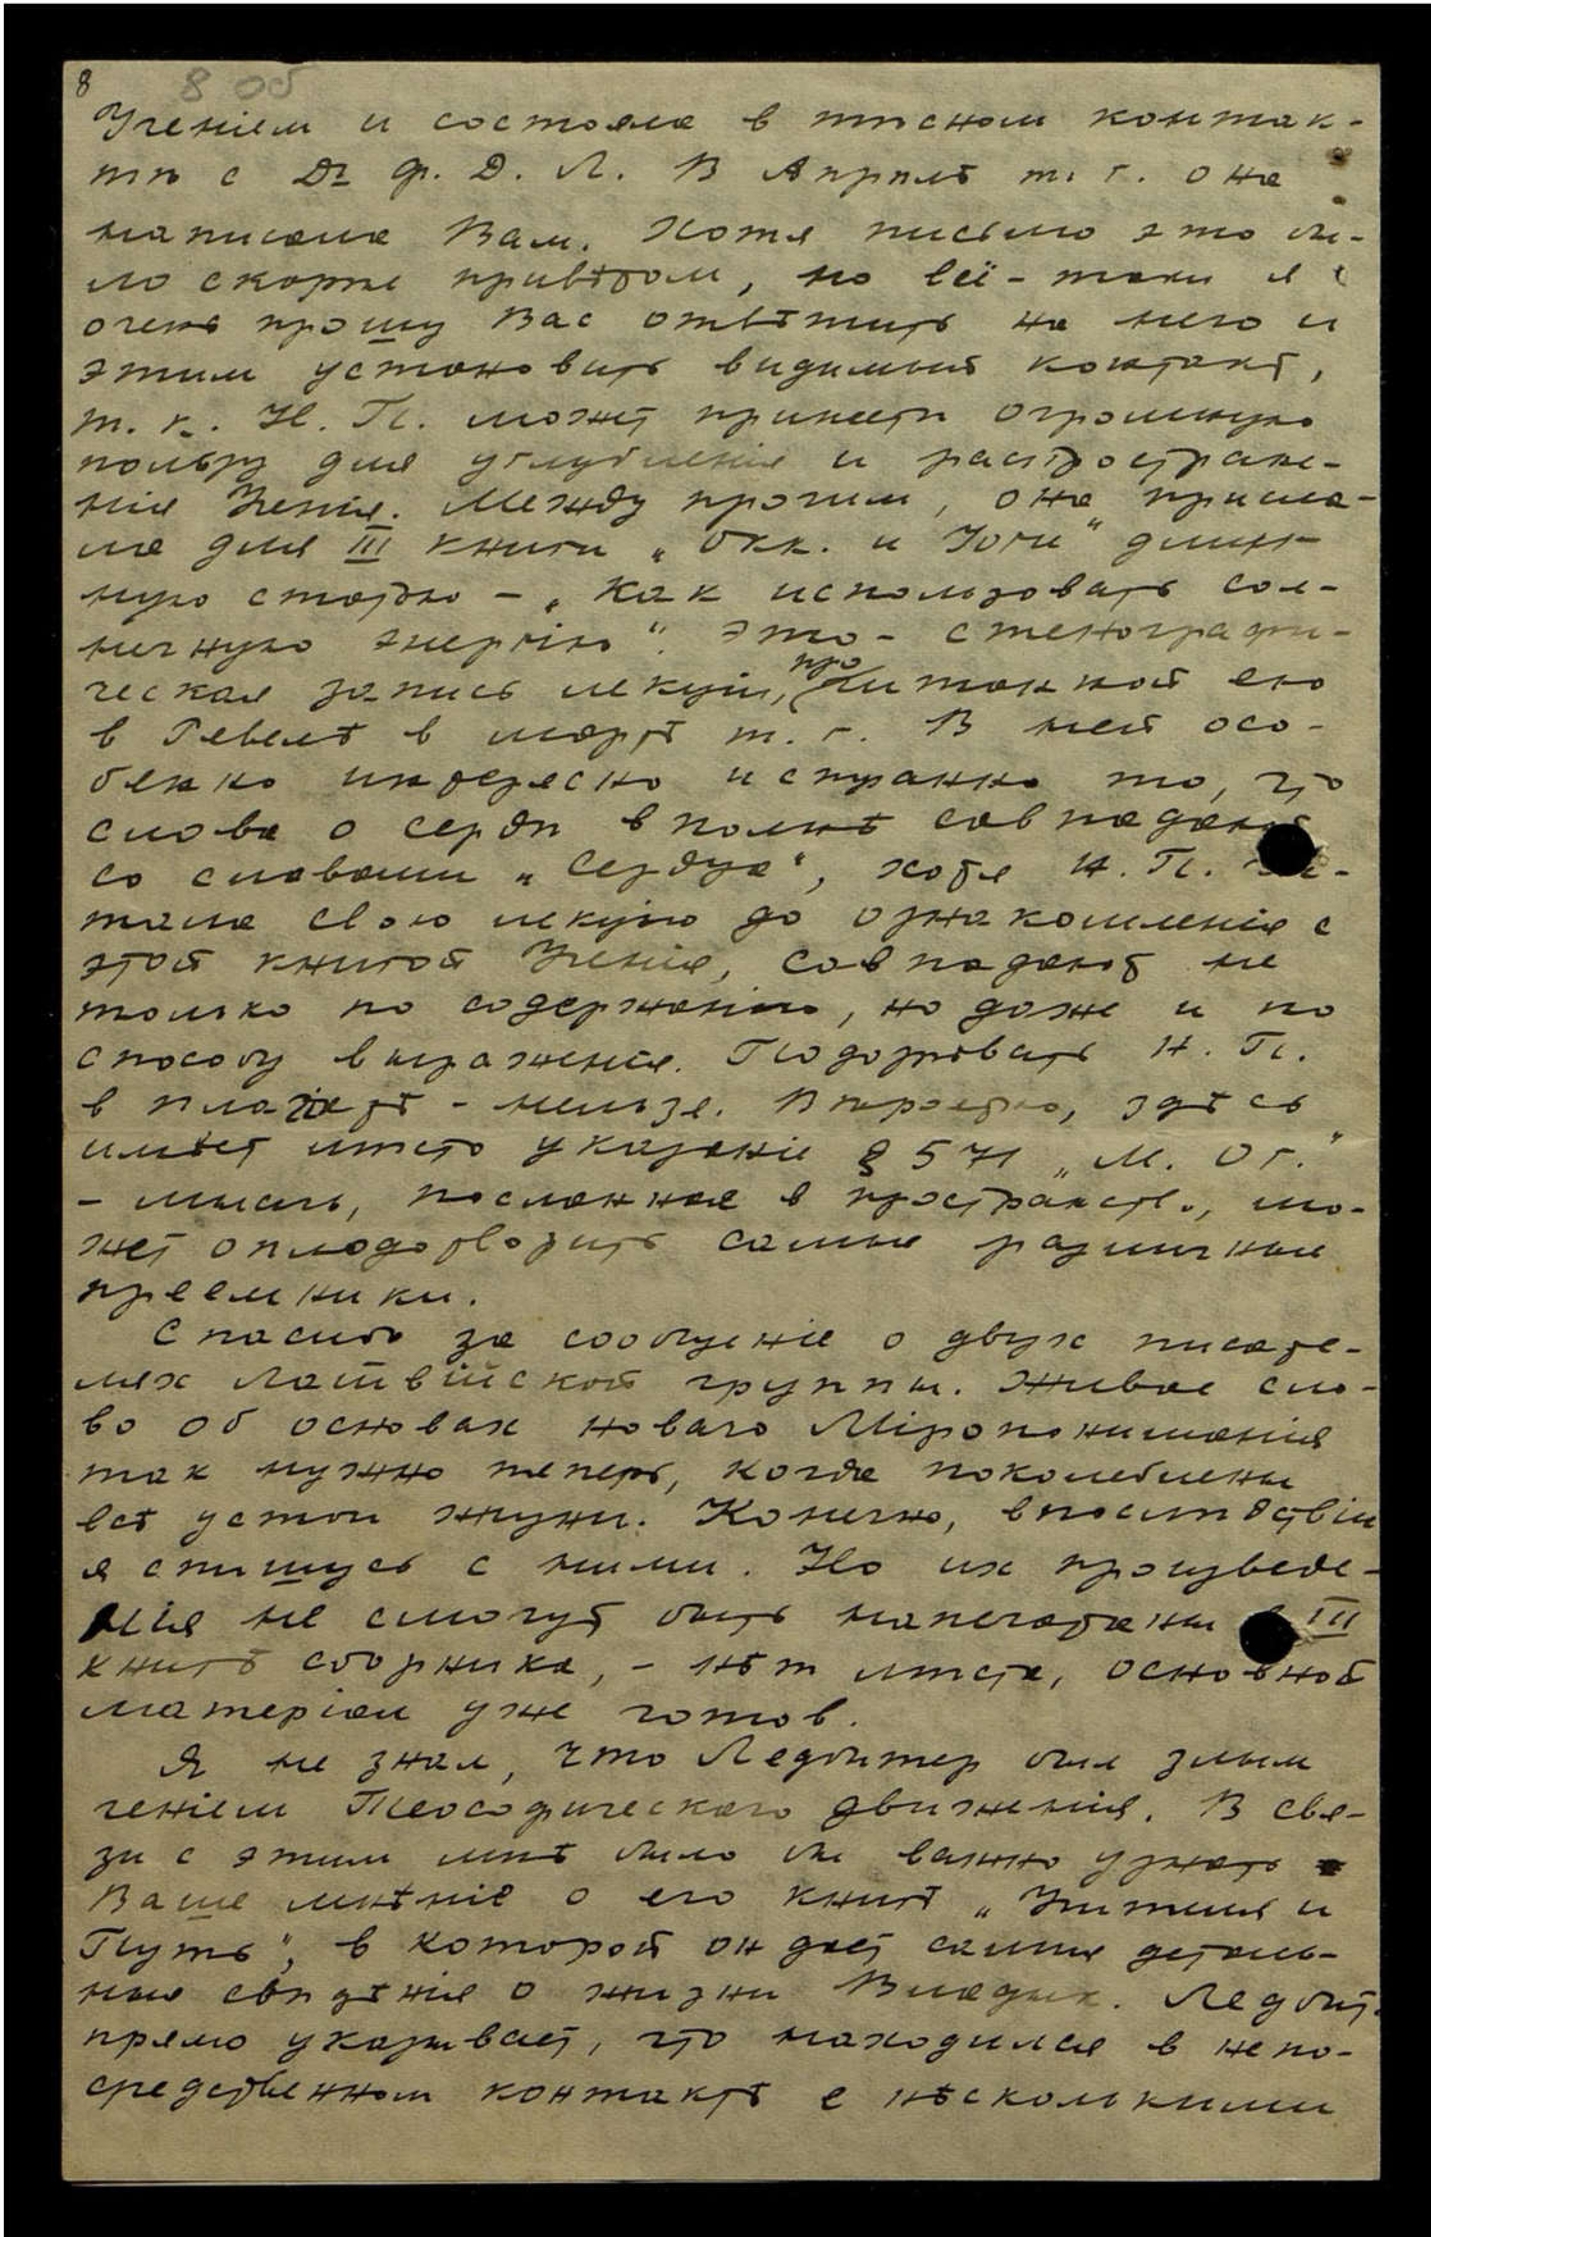 8 8 об
Ученіем и состояла в тѣсном контак-
тѣ с Dr ф. Д. Л. В Апрѣлѣ т. г. она
написала Вам. Хотя письмо это бы-
ло скорѣе привѣтом, но всё-таки я
очень прошу Вас отвѣтить на него и
этим установить видимый контакт,
т. к. Н. П. может принести огромную
пользу для углубленія и распростране-
нія Ученія. Между прочим, она присла-
ла для III книги „Окк. и Йоги" длин-
ную статью – „Как использовать сол-
нечную энергію". Это – стенографи-
ческая запись лекціи, прочитанной ею
в Ревелѣ в мартѣ т. г. В ней осо-
бенно интересно и странно то, что
слова о сердцѣ вполнѣ совпадают
со словами „Сердца", хотя Н. П. чи-
тала свою лекцію до ознакомленія с
этой книгой Ученія, совпадают не
только по содержанію, но даже и по
способу выраженія. Подозрѣвать Н. П.
в плагіатѣ – нельзя. Вѣроятно, здѣсь
имѣет мѣсто указаніе § 571 „М. Ог."
– мысль, посланная в пространство, мо-
жет оплодотворить самые различные
преемники.
Спасибо за сообщеніе о двух писате-
лях Латвійской группы. Живое сло-
во об основах новаго Міропониманія
так нужно теперь, когда поколеблены
всѣ устои жизни. Конечно, впослѣдствіи
я спишусь с ними. Но их произведе-
нія не смогут быть напечатаны в III
книгѣ сборника, – нѣт мѣста, основной
матеріал уже готов.
Я не знал, что Ледбитер был злым
геніем Теософическаго движенія. В свя-
зи с этим мнѣ было бы важно узнать
Ваше мнѣніе о его книгѣ „Учителя и
Путь", в которой он дает самыя деталь-
ныя свѣдѣнія о жизни Владык. Ледбит.
прямо указывает, что находился в непо-
средственном контактѣ с нѣсколькими